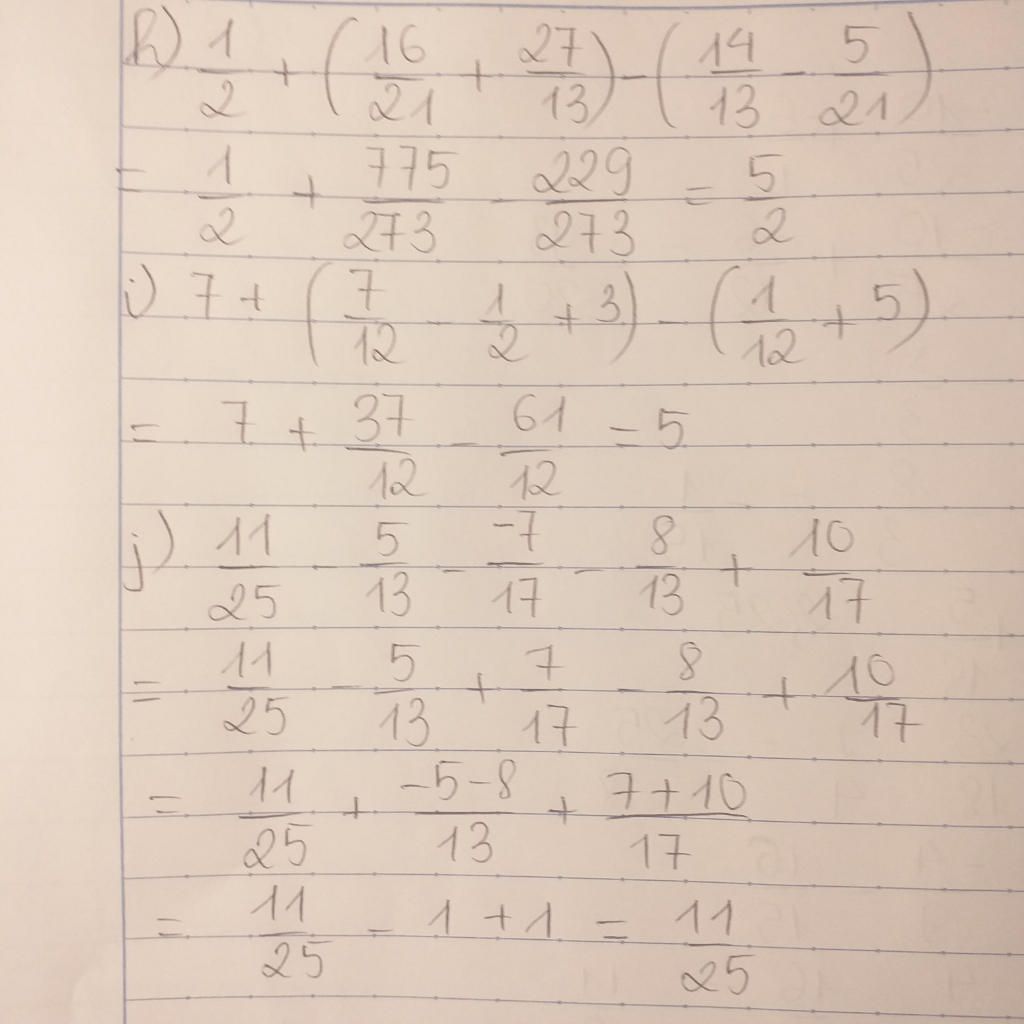 h) 1/2 + (16/21 + 27/13) - (14/13 - 5/21)
= 1/2 + 775/273 - 229/273 = 5/2
i) 7 + (7/12 - 1/2 + 3) - (1/12 + 5)
= 7 + 37/12 - 61/12 = 5
j) 11/25 - 5/13 - -7/17 - 8/13 + 10/17
= 11/25 - 5/13 + 7/17 - 8/13 + 10/17
= 11/25 + -5-8/13 + 7+10/17
= 11/25 - 1 + 1 = 11/25